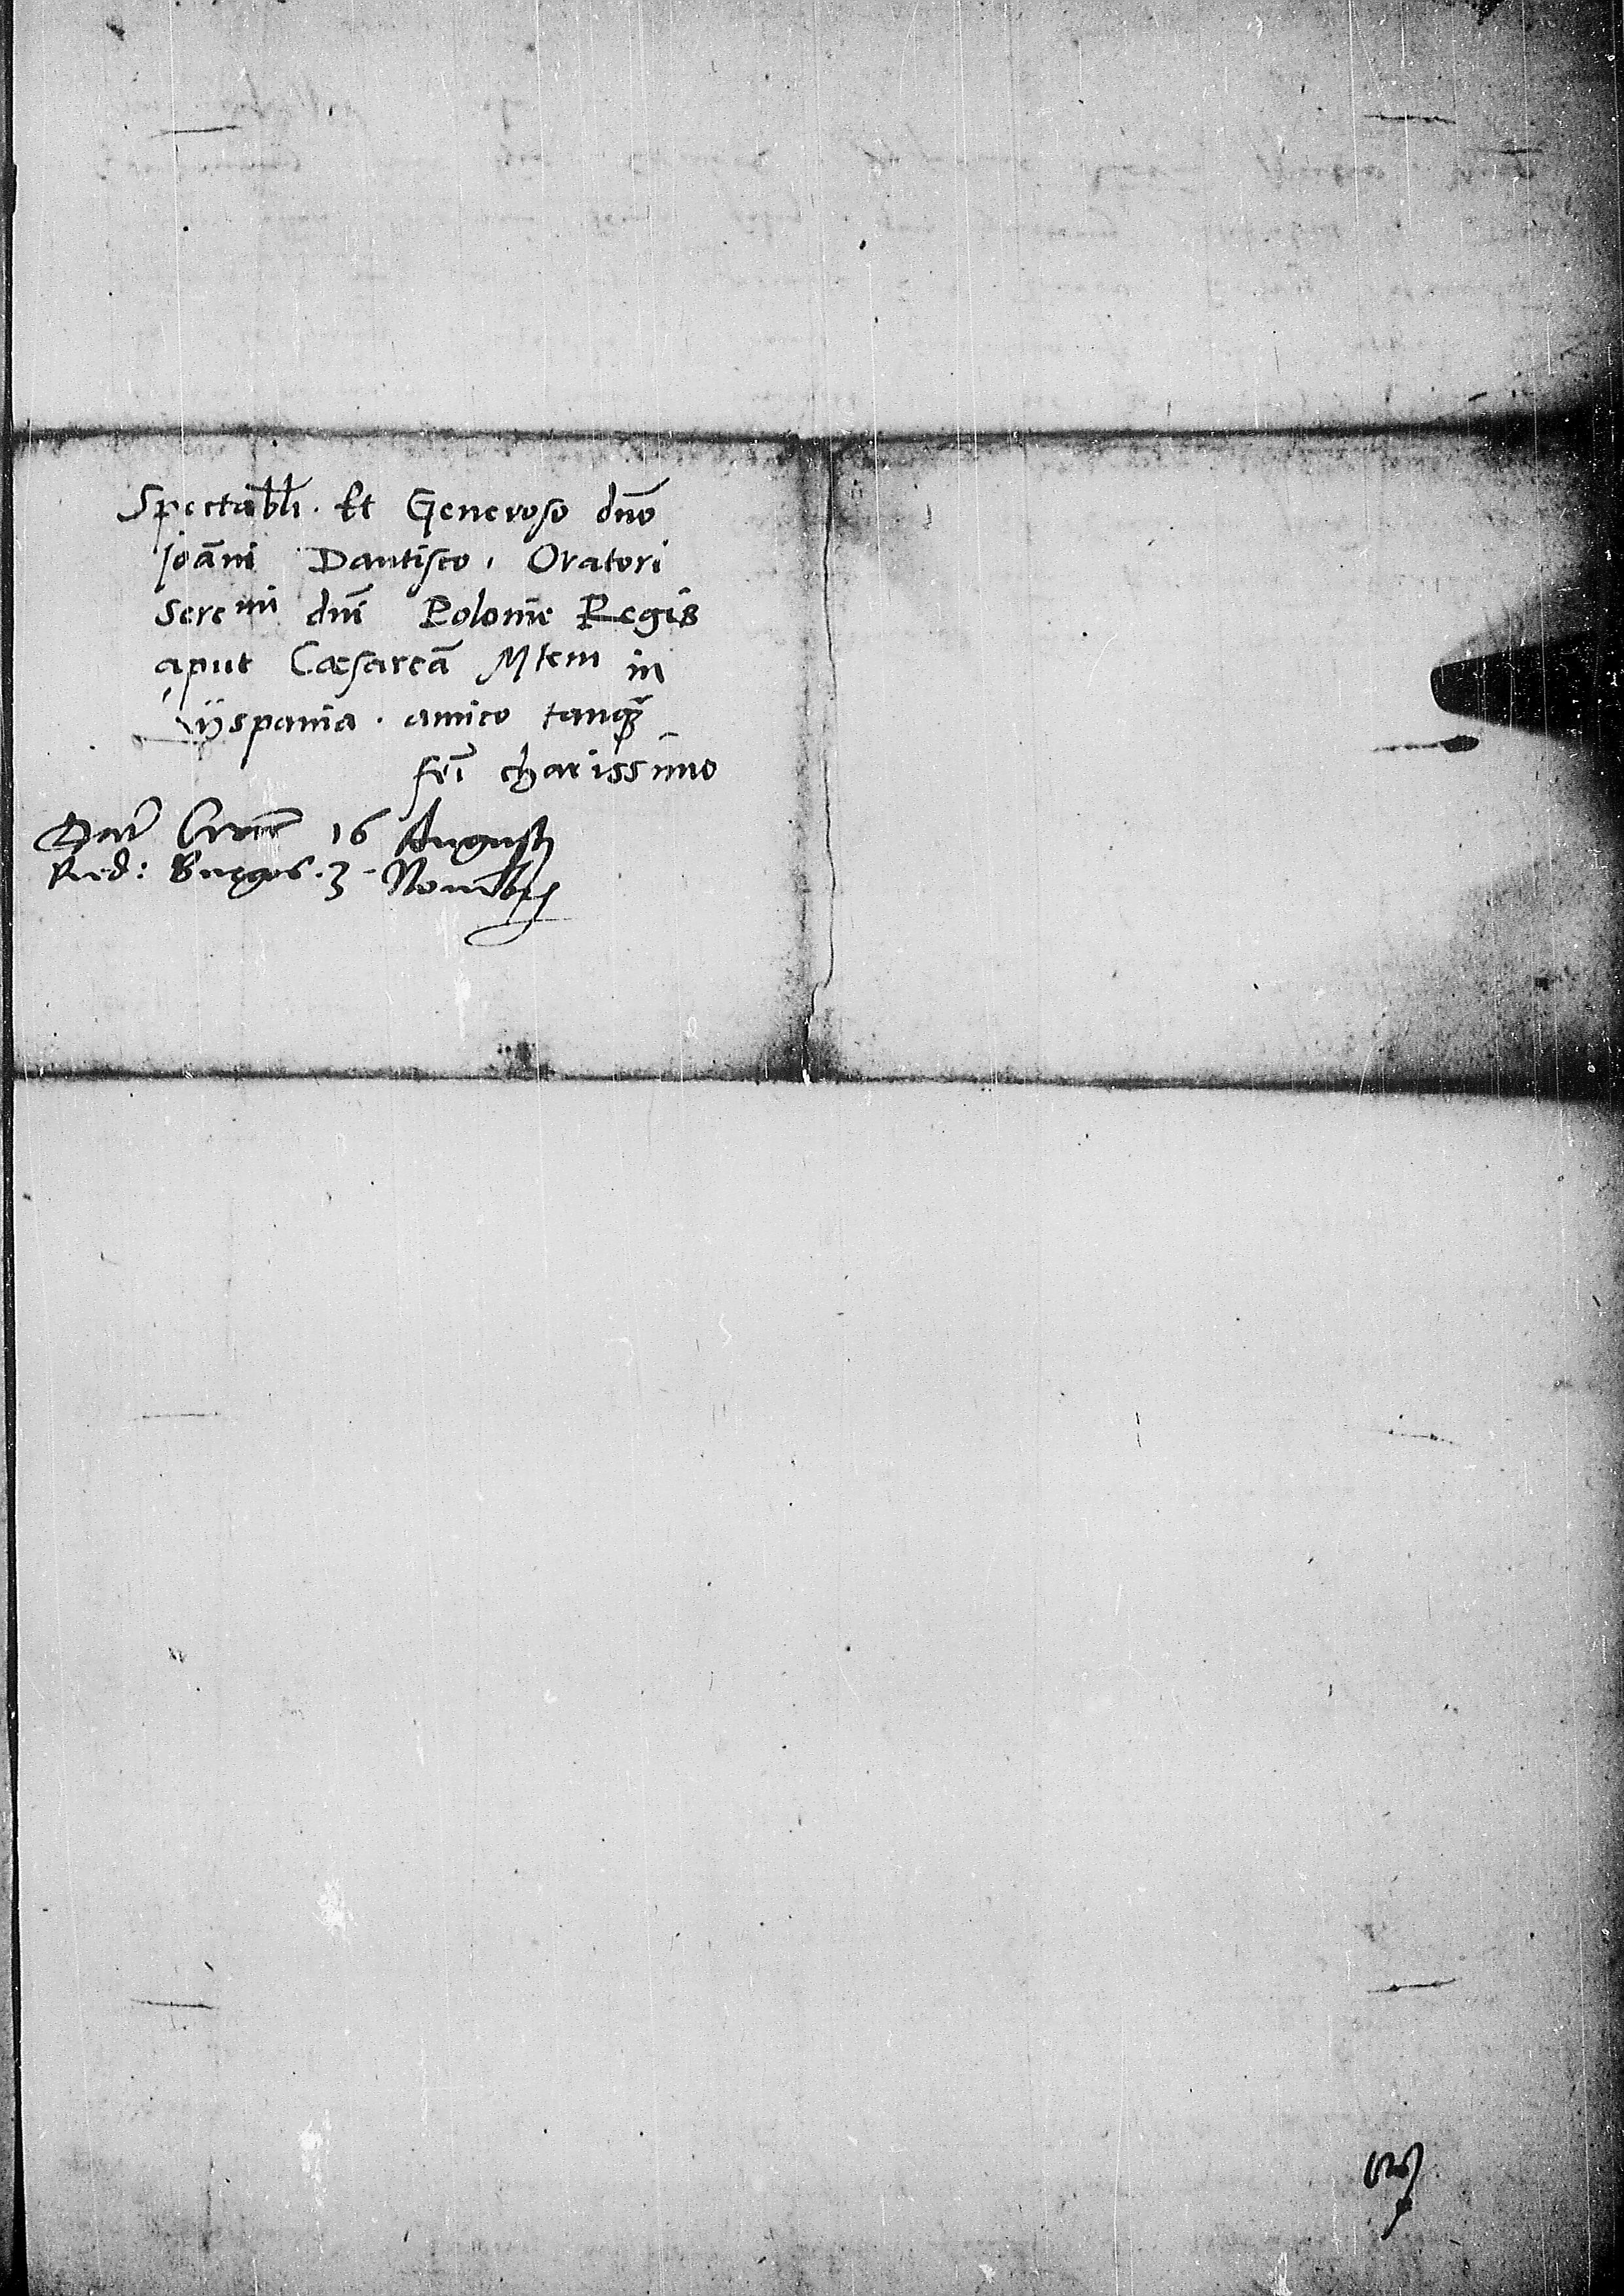 Spectabli. Et Generoso dno
joāni Dantisco, Oratori
Sere mi dni Polonie Regis
aput Cæsareā Mtem in
Hyspania. amico tanq̃
fri charissimo
Dat Crac 16 Augusti
Red: Burgos. 3. Nouembris